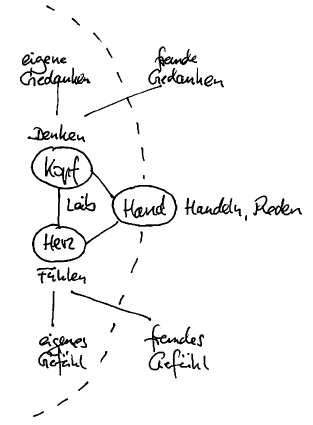 eigene
Gedanken
fremde
Gedanken
Denken
Kopf
Leib
Hand
Handeln, Reden
Herz
Fühlen
eigenes
Gefühl
fremdes
Gefühl